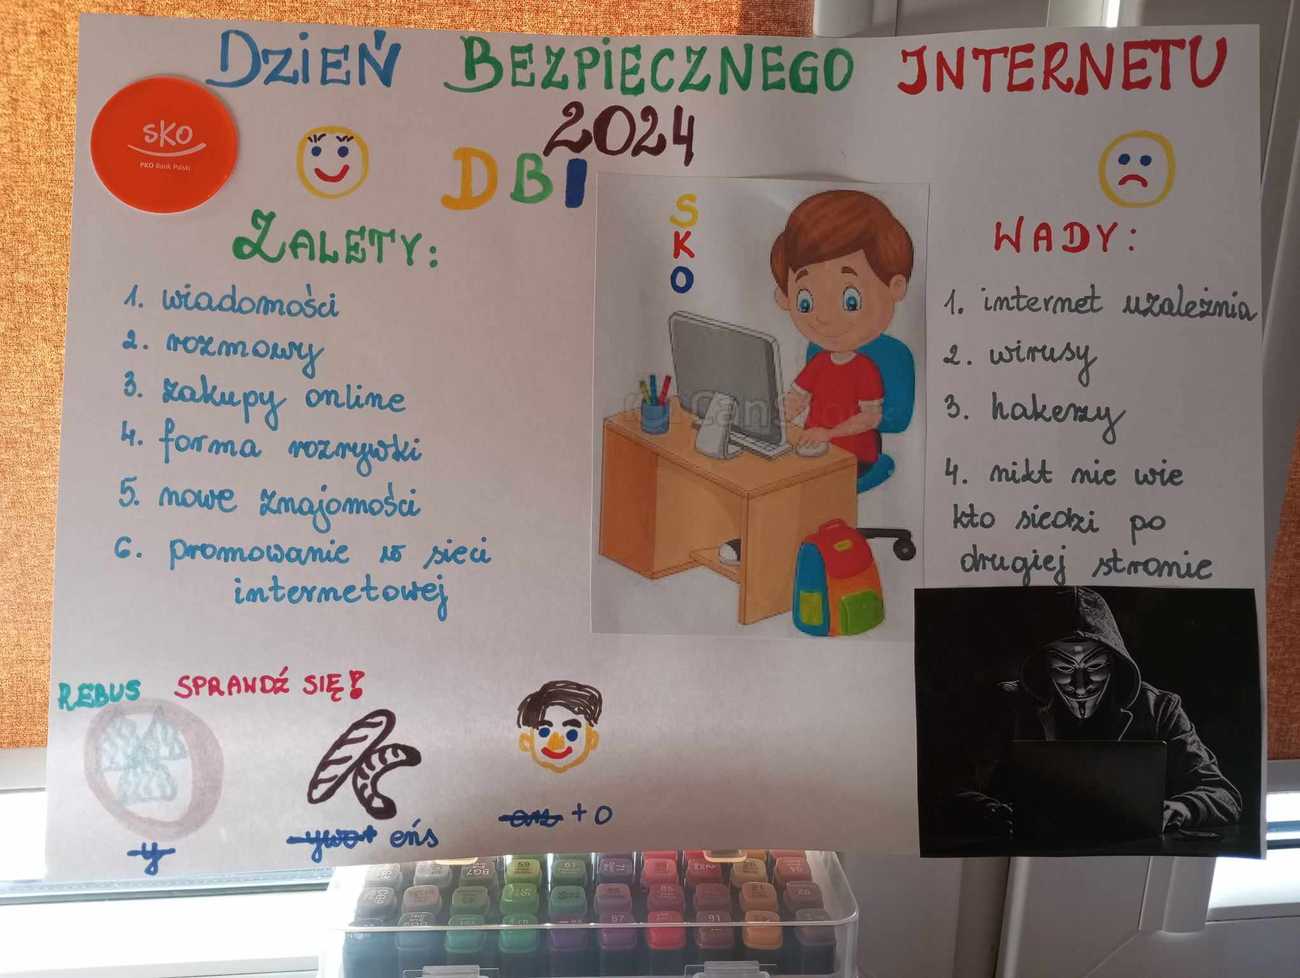 DZIEŃ BEZPIECZNEGO INTERNETU
2024
DBI
SKO
PKO Bank Polski
ZALETY:
1. wiadomości
2. rozmowy
3. zakupy online
4. forma rozrywki
5. nowe znajomości
6. promowanie w sieci
internetowej
S
K
O
CanStock
WADY:
1. internet uzależnia
2. wirusy
3. hakerzy
4. nikt nie wie
kto siedzi po
drugiej stronie
REBUS SPRAWDŹ SIĘ!
y
ywo+ eńs
+ o